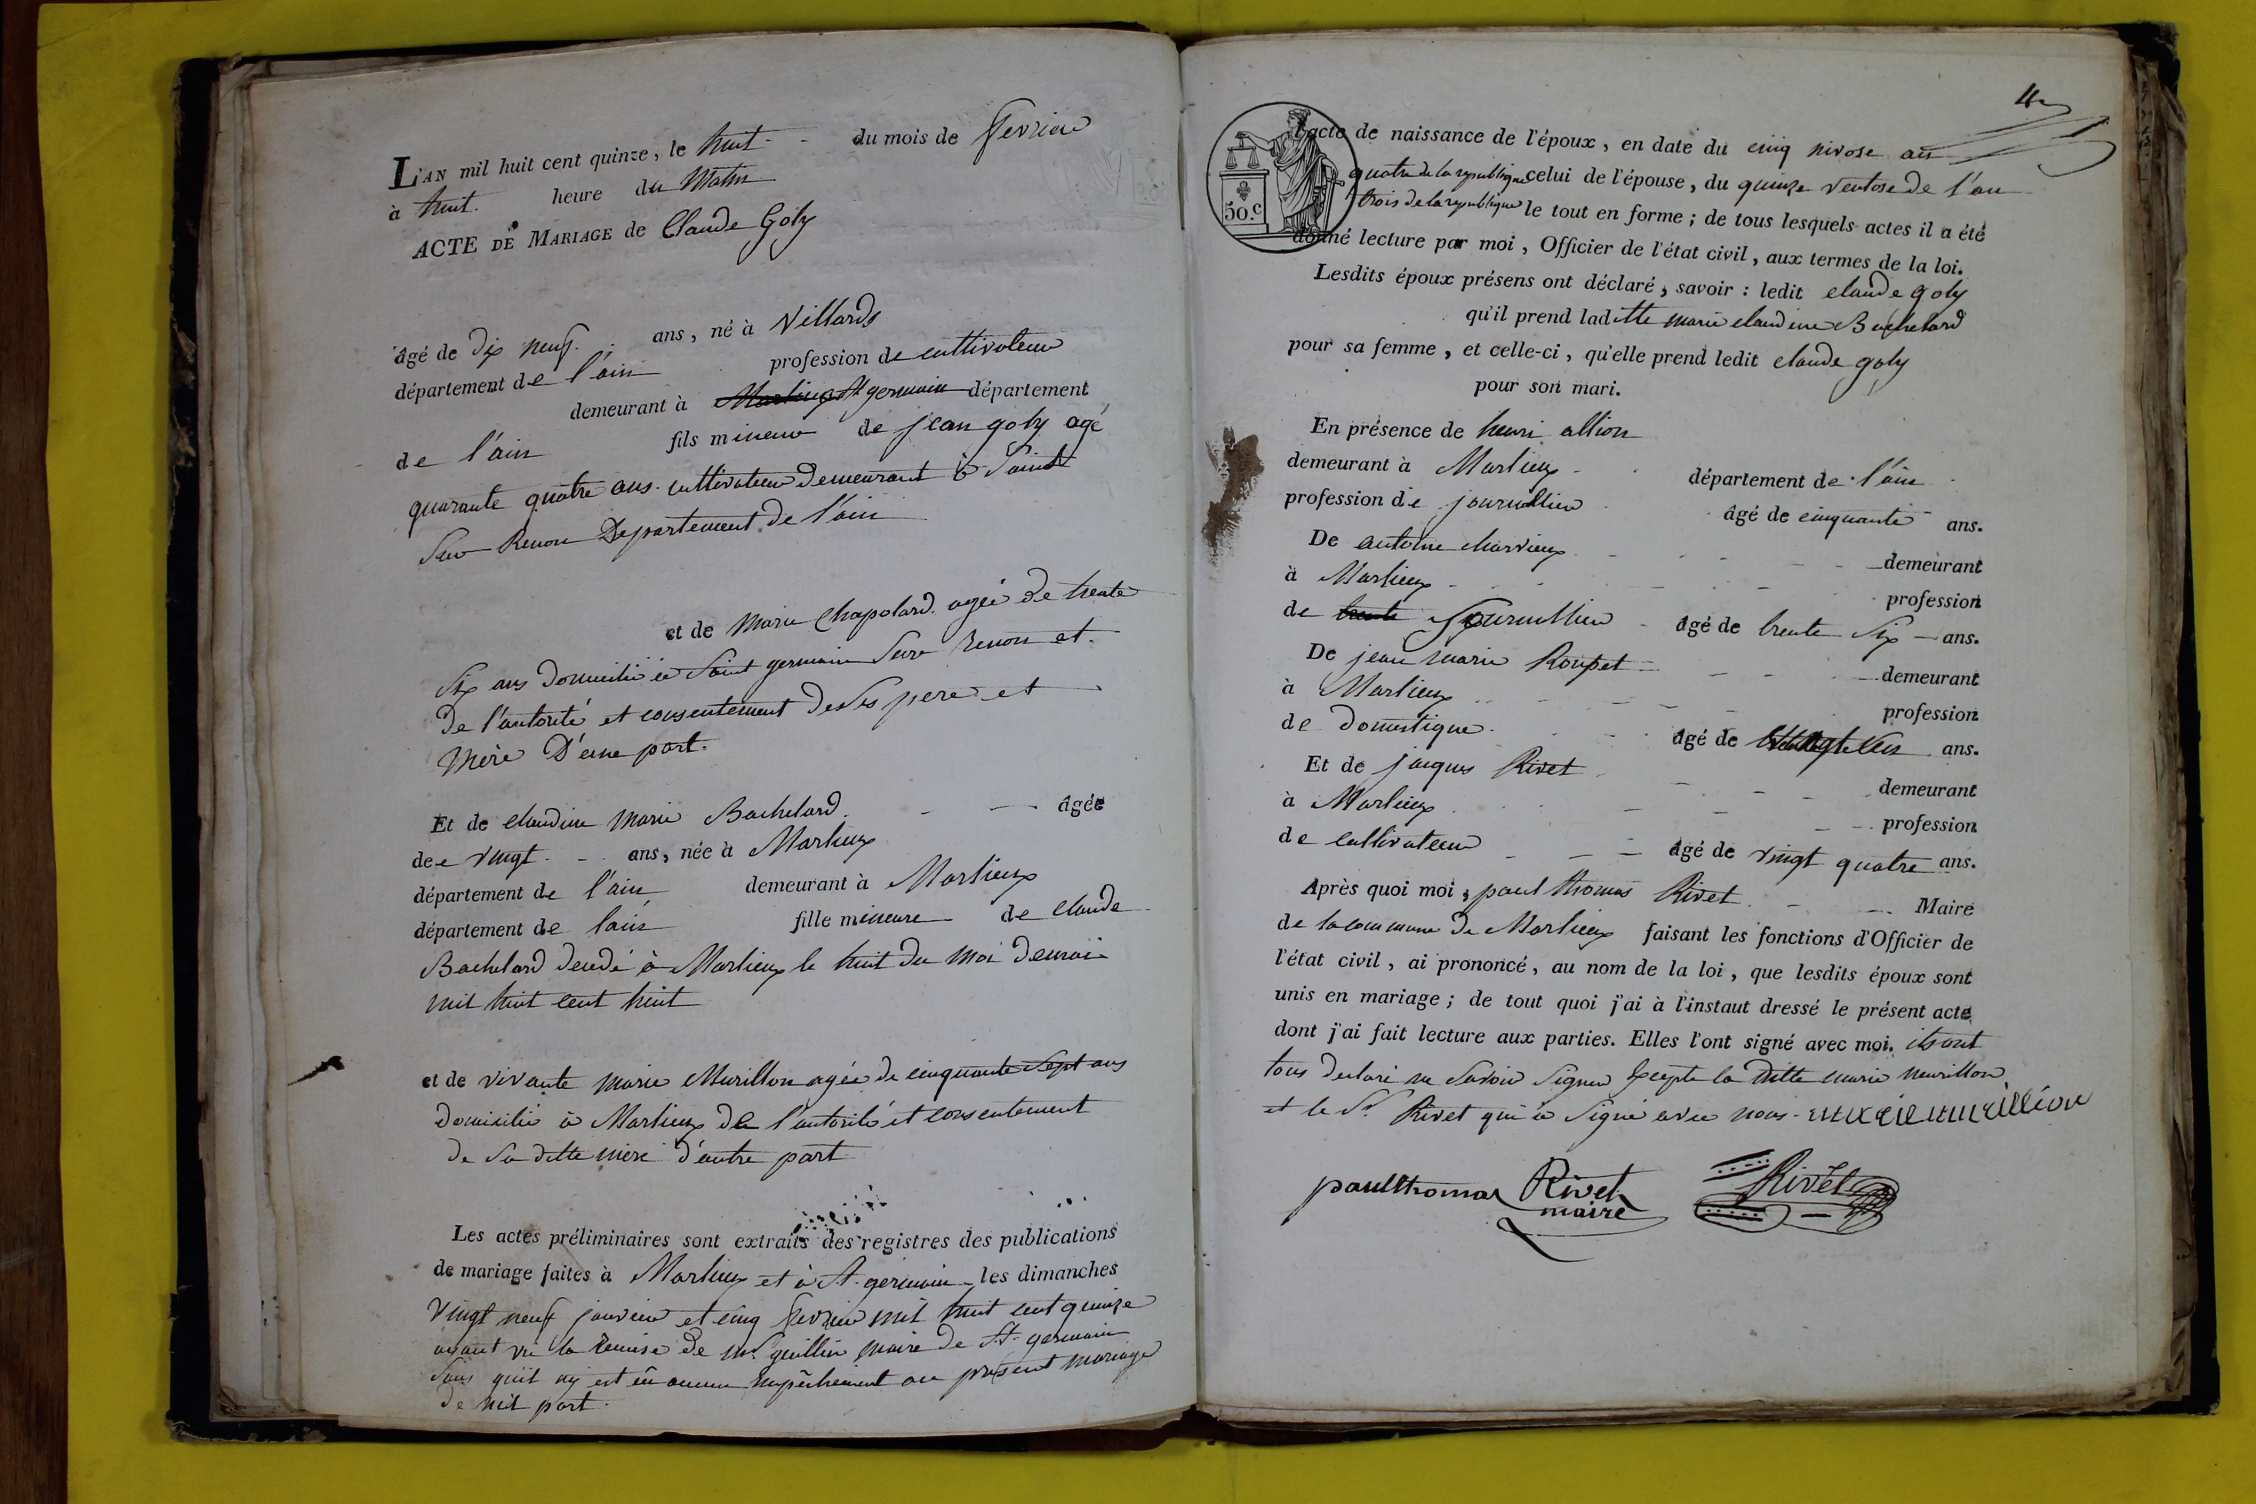 L'AN mil huit cent quinze, le huit du mois de fevrier
à huit heure du Matin
ACTE DE MARIAGE de Claude Goly
âgé de dix neuf ans, né à Villards
département de l'ain profession de cultivateur
demeurant à St germain département
de l'ain fils mineur de jean goly agé
quarante quatre ans cultivateur demeurant à Saint
Sur Renon Departement de l'ain
et de Marie Chapolard agée de trente
Six ans domicilié à Saint germain Sur Renon et
de l'autorité et consentement de Ses pere et
Mère D'une part.
Et de claudine Marie Bachelard âgée
dee vingt ans, née à Marlieux
département de l'ain demeurant à Marlieux
département de l'ain fille mineure de claude
Bachelard decedé à Marlieux le huit du moi
mil huit cent huit
et de vivante marie Murillon agée de cinquante Sept ans
domicilié à Marlieux de l'autorité et consentement
de Sa ditte mère d'autre part
Les actes préliminaires sont extraits des registres des publications
de mariage faites à Marlieux et à St germain les dimanches
vingt neuf janvier et cinq fevrier mil huit cent quinze
ayant vu la remise de Mr guillin maire de St germain
Sans quil ny est eû aucun empêchement au présent mariage
de nul part.
4
50.c
l'acte de naissance de l'époux, en date du cinq nivose an
quatre de la republique celui de l'épouse, du quinze ventose de l'an
trois de la republique le tout en forme; de tous lesquels actes il a été
donné lecture par moi, Officier de l'état civil, aux termes de la loi.
Lesdits époux présens ont déclaré, savoir: ledit claude goly
qu'il prend laditte marie claudine Bachelard
pour sa femme, et celle-ci, qu'elle prend ledit claude goly
pour son mari.
En présence de henri allion
demeurant à Marlieux département de l'ain
profession de journallier âgé de cinquante ans.
De antoine charvieux demeurant
à Marlieux profession
de trente Journallier âgé de trente Six ans.
De jean marie Roupet demeurant
à Marlieux profession
de domestique âgé de ans.
Et de jacques Rivet demeurant
à Marlieux profession
de cultivateur âgé de vingt quatre ans.
Après quoi moi, paul thomas Rivet Maire
de la commune de Marlieux faisant les fonctions d'Officier de
l'état civil, ai prononcé, au nom de la loi, que lesdits époux sont
unis en mariage; de tout quoi j'ai à l'instaut dressé le présent acte
dont j'ai fait lecture aux parties. Elles l'ont signé avec moi. ils ont
tous declaré ne Savoir Signer Excepte la ditte marie meurillon
et le Sr Rivet qui a Signé avec nous. marie murillion
paul thomas Rivet Rivet
maire